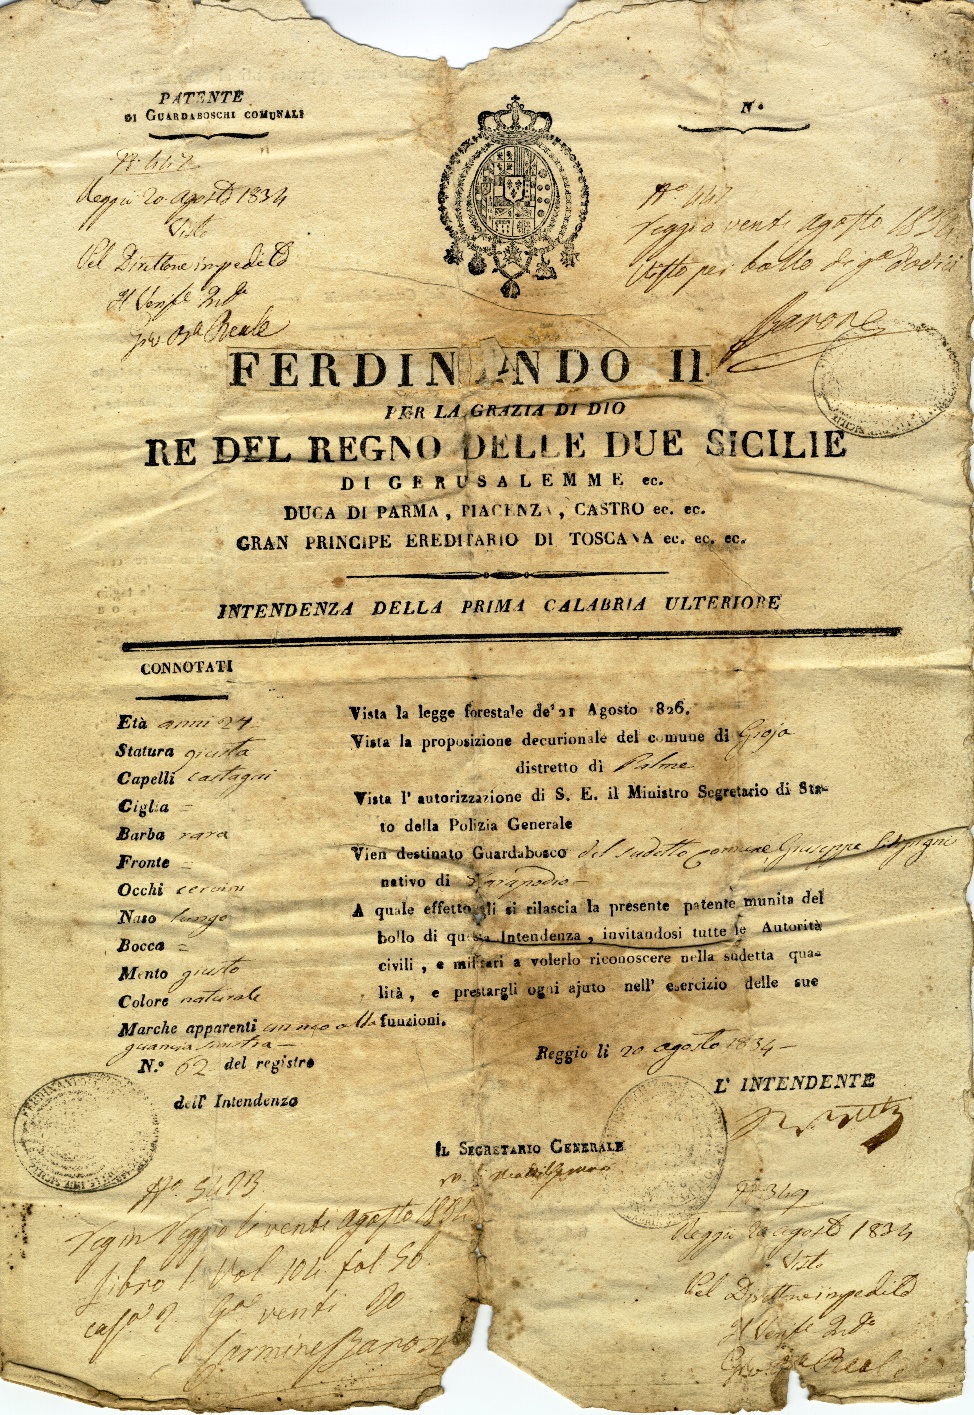 PATENTE
DI GUARDABOSCHI COMUNALI
N.°
N. 447
Reggio 20 agosto 1834
Visto
Pel Direttore impedito
Reale
N.° 447
Reggio venti agosto
Visto pel bollo di
Barone
FERDINANDO II
PER LA GRAZIA DI DIO
RE DEL REGNO DELLE DUE SICILIE
DI GERUSALEMME ec.
DUCA DI PARMA, PIACENZA, CASTRO ec. ec.
GRAN PRINCIPE EREDITARIO DI TOSCANA ec. ec. ec.
INTENDENZA DELLA PRIMA CALABRIA ULTERIORE
CONNOTATI
Età anni 24
Statura giusta
Capelli castagni
Ciglia =
Barba rara
Fronte =
Occhi cervini
Naso lungo
Bocca =
Mento giusto
Colore naturale
Marche apparenti un neo alla
guancia sinistra
N.° 62 del registro
dell' Intendenza
Vista la legge forestale de' 21 Agosto 1826.
Vista la proposizione decurionale del comune di Gioja
distretto di Palme
Vista l' autorizzazione di S. E. il Ministro Segretario di Sta-
to della Polizia Generale
Vien destinato Guardabosco del sudetto comune Giuseppe
nativo di
A quale effetto gli si rilascia la presente patente munita del
bollo di questa Intendenza, invitandosi tutte le Autorità
civili, e militari a volerlo riconoscere nella sudetta qua-
lità, e prestargli ogni ajuto nell' esercizio delle sue
funzioni.
Reggio li 20 agosto 1834
L' INTENDENTE
IL SEGRETARIO GENERALE
N.°
Reggio li venti agosto 1834
Libro 1 Vol 104 fol 50
venti 20
Carmine Barone
N.° 349
Reggio 20 agosto 1834
Visto
Pel Direttore impedito
Reale